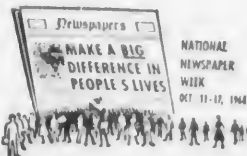 Newspapers
MAKE A BIG
DIFFERENCE IN
PEOPLE S LIVES
NATIONAL
NEWSPAPER
WEEK
OCT 11-17, 1968